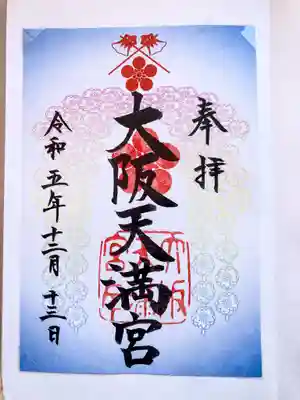 奉拝
大阪天満宮
令和五年十二月十三日